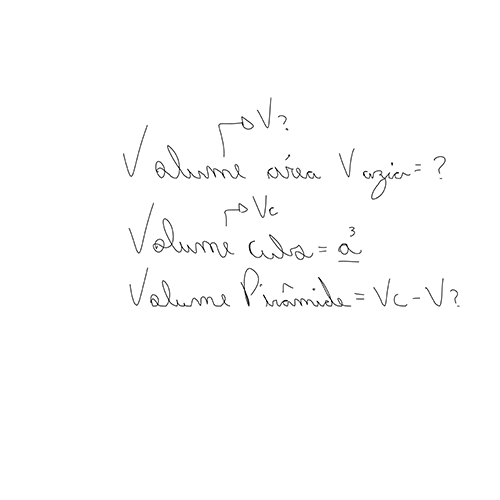 V?
Volume área Vazia = ?
Vc
Volume cubo = a³
Volume Pirâmide = Vc - V?